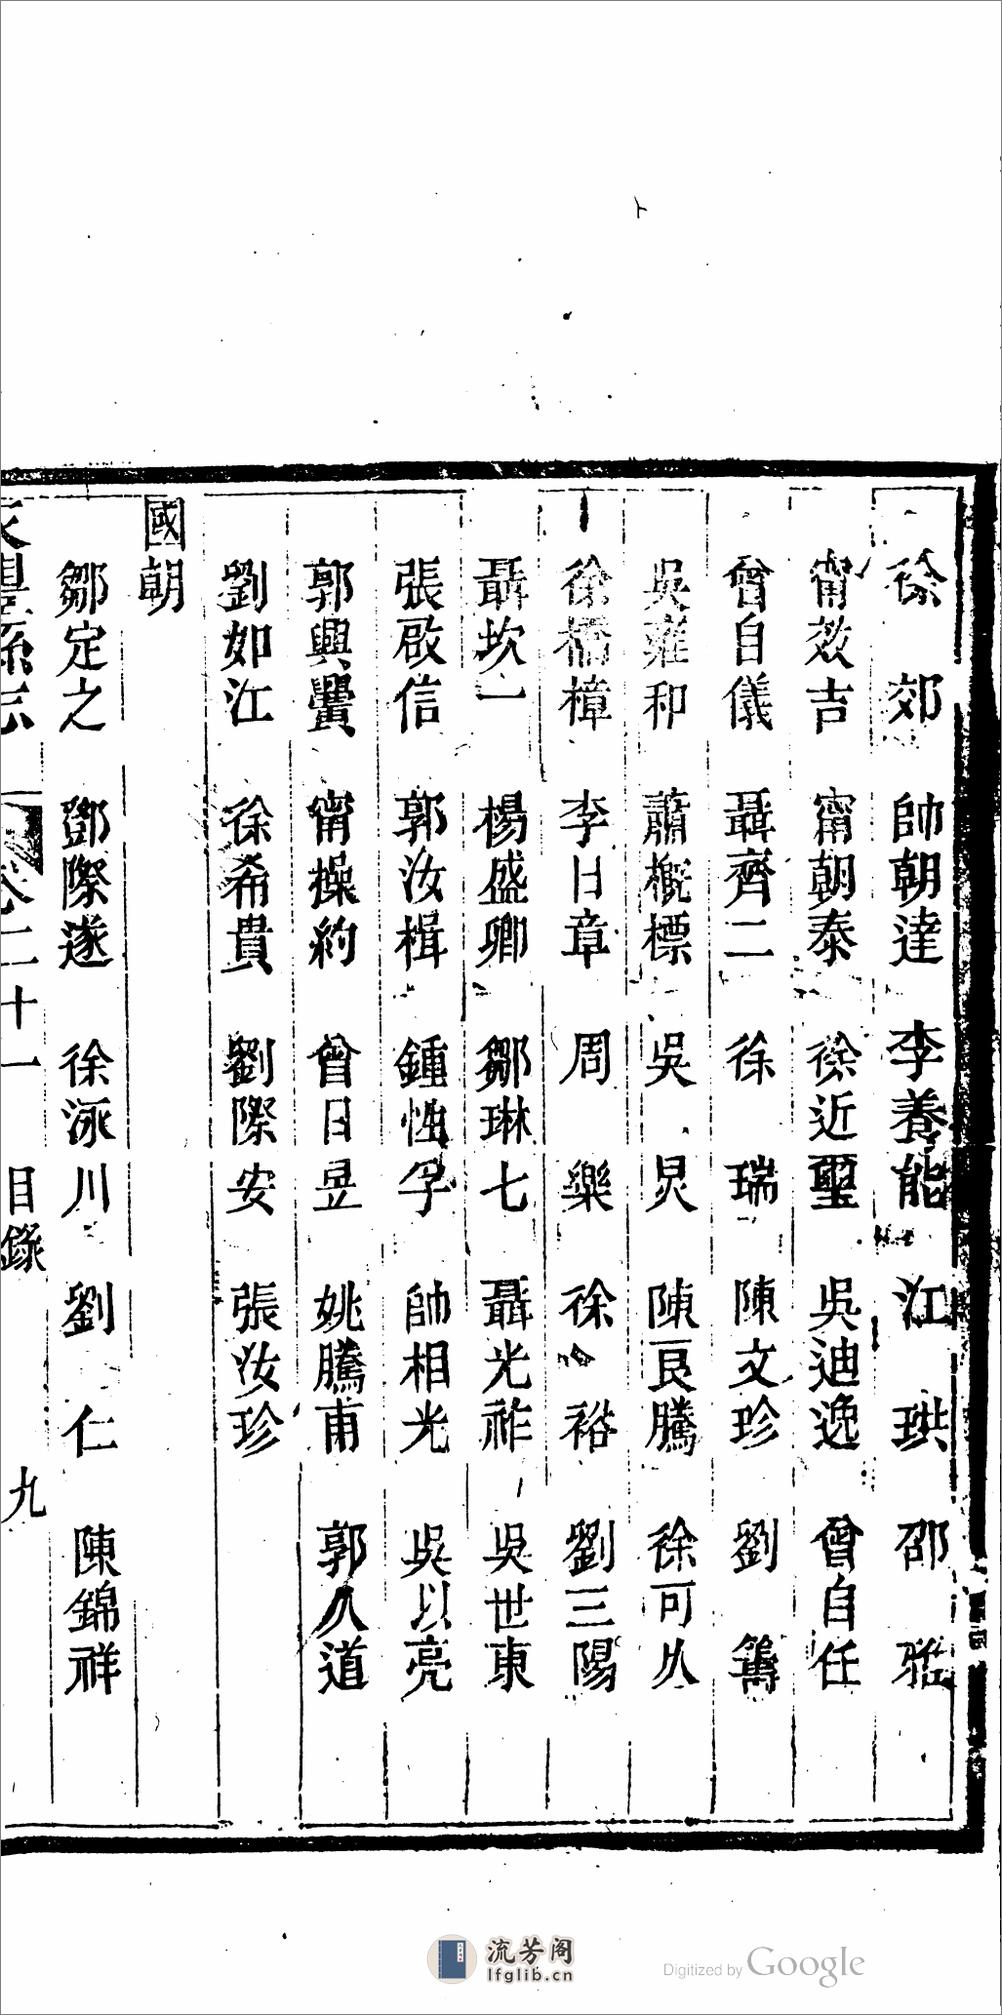 徐　郊　帥朝達　李養能　江　珙　邵　雅
甯效吉　甯朝泰　徐近璽　吳迪逸　曾自任
曾自儀　聶齊二　徐　瑞　陳文珍　劉　籌
吳雍和　蕭概標　吳　炅　陳良騰　徐可久
徐橋樟　李日章　周　樂　徐　裕　劉三陽
聶坎一　楊盛卿　鄒琳七　聶光祚　吳世東
張啟信　郭汝楫　鍾性孚　帥相光　吳以亮
郭興釁　甯操約　曾日昱　姚騰甫　郭久道
劉如江　徐希貴　劉際安　張汝珍
國朝
鄒定之　鄧際遂　徐泳川　劉　仁　陳錦祥
縣志　卷二十一　目錄　九
流芳阁
lfglib.cn
Digitized by Google